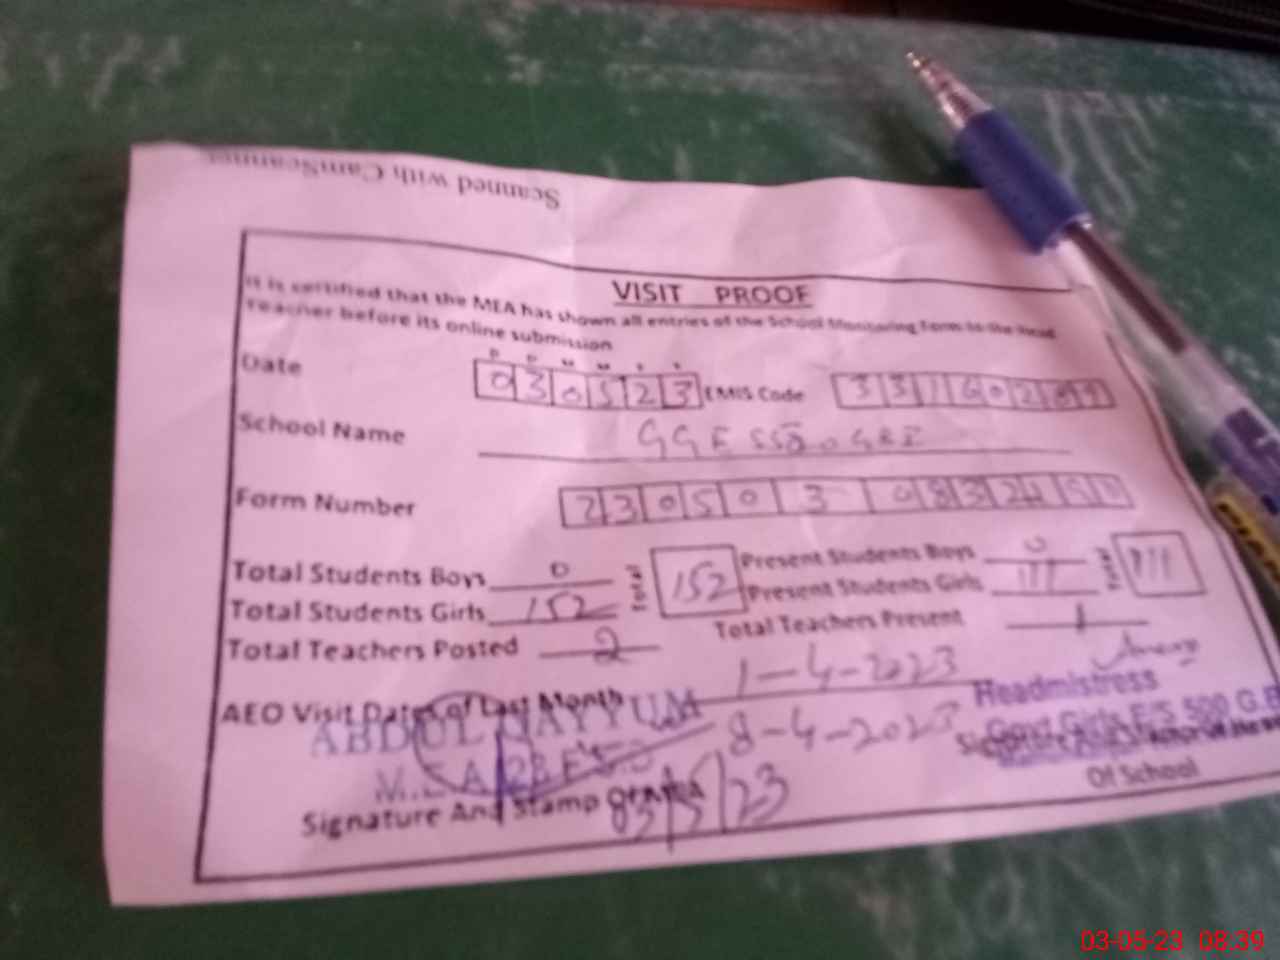 Scanned with CamScanner
VISIT PROOF
It is certified that the MEA has shown all entries of the School Monitoring Form to the Head
Teacher before its online submission
D D M M Y Y
Date 0 3 0 5 2 3 EMIS Code
School Name
Form Number 2 3 0 5 0 3
Total Students Boys 0 Total 152 Present Students Boys 0 Total 111
Total Students Girls 152 Present Students Girls 111
Total Teachers Posted 2 Total Teachers Present 1
AEO Visit Dates of Last Month 1-4-2023
8-4-2023
ABDUL QAYYUM
Headmistress
Govt Girls E/S 500 G.B
Signature And Stamp Of MEA
03/5/23
Of School
03-05-23 08:39